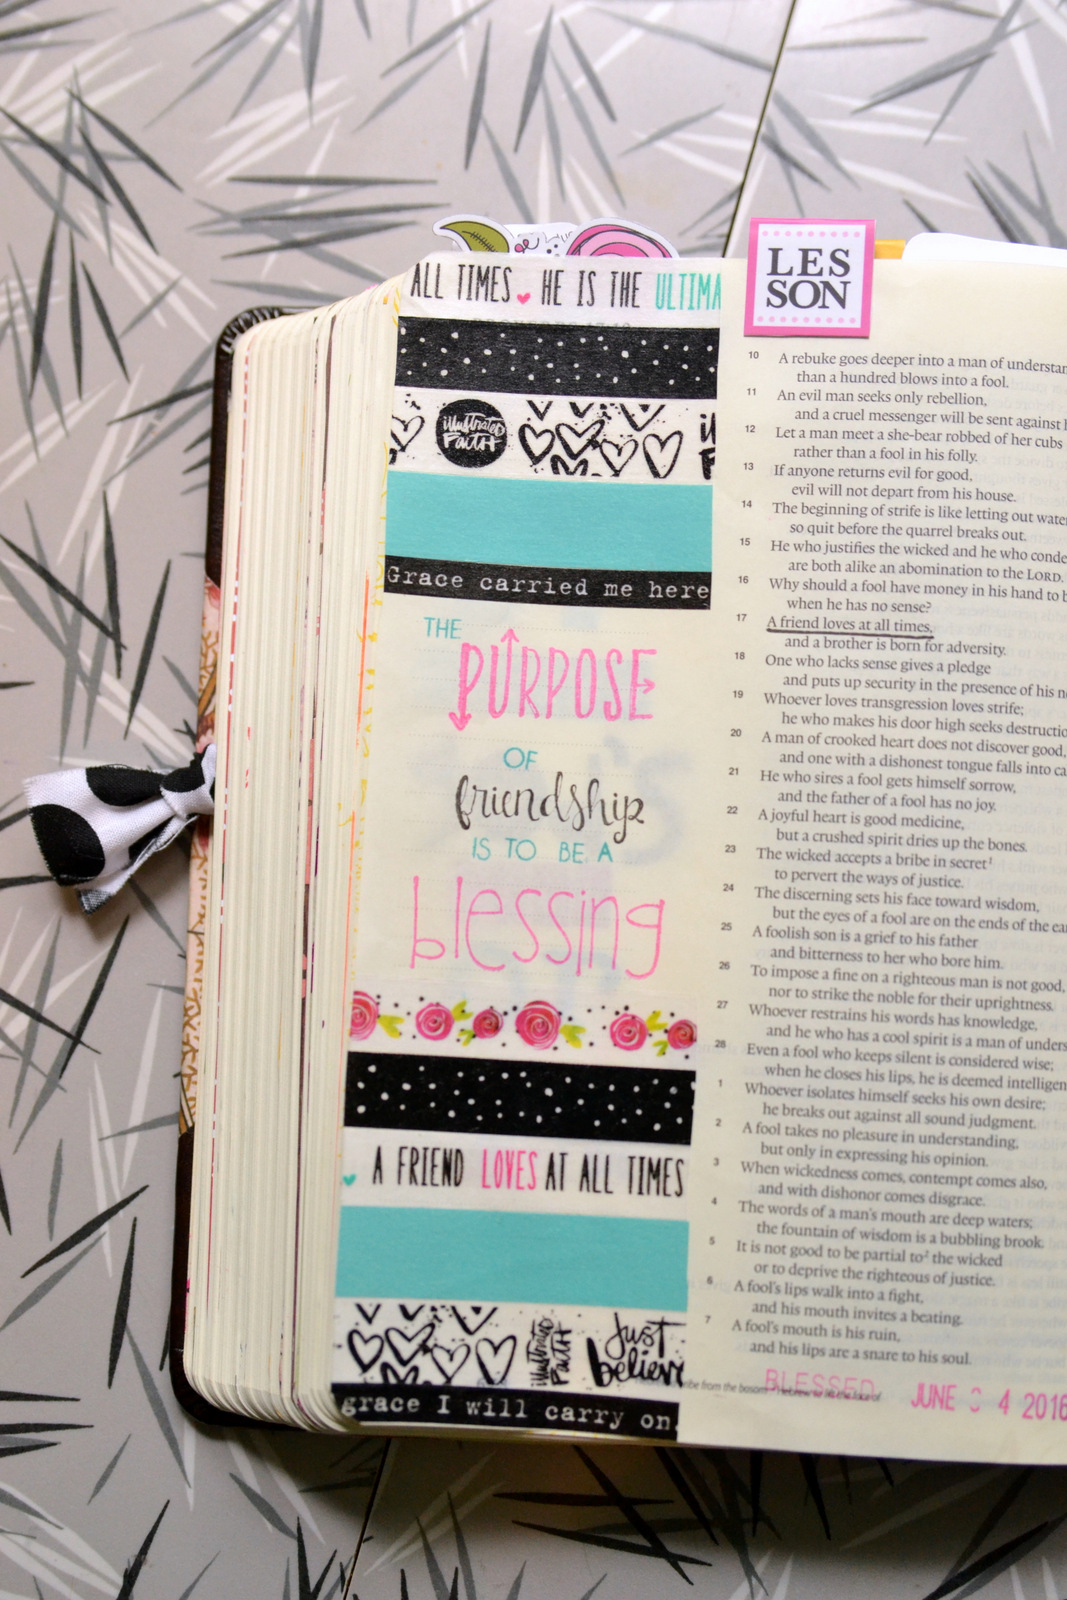 ALL TIMES HE IS THE ULTIMA
illustrated FAITH
Grace carried me here
THE
PURPOSE
OF
friendship
IS TO BE A
blessing
A FRIEND LOVES AT ALL TIMES
illustrated FAITH
Just believe
grace I will carry on.
LES
SON
10 A rebuke goes deeper into a man of understan
than a hundred blows into a fool.
11 An evil man seeks only rebellion,
and a cruel messenger will be sent against
12 Let a man meet a she-bear robbed of her cubs
rather than a fool in his folly.
13 If anyone returns evil for good,
evil will not depart from his house.
14 The beginning of strife is like letting out wate
so quit before the quarrel breaks out.
15 He who justifies the wicked and he who conde
are both alike an abomination to the LORD.
16 Why should a fool have money in his hand to b
when he has no sense?
17 A friend loves at all times,
and a brother is born for adversity.
18 One who lacks sense gives a pledge
and puts up security in the presence of his ne
19 Whoever loves transgression loves strife;
he who makes his door high seeks destructio
20 A man of crooked heart does not discover good,
and one with a dishonest tongue falls into ca
21 He who sires a fool gets himself sorrow,
and the father of a fool has no joy.
22 A joyful heart is good medicine,
but a crushed spirit dries up the bones.
23 The wicked accepts a bribe in secret¹
to pervert the ways of justice.
24 The discerning sets his face toward wisdom,
but the eyes of a fool are on the ends of the ea
25 A foolish son is a grief to his father
and bitterness to her who bore him.
26 To impose a fine on a righteous man is not good,
nor to strike the noble for their uprightness.
27 Whoever restrains his words has knowledge,
and he who has a cool spirit is a man of unders
28 Even a fool who keeps silent is considered wise;
when he closes his lips, he is deemed intelligen
1 Whoever isolates himself seeks his own desire;
he breaks out against all sound judgment.
2 A fool takes no pleasure in understanding,
but only in expressing his opinion.
3 When wickedness comes, contempt comes also,
and with dishonor comes disgrace.
4 The words of a man's mouth are deep waters;
the fountain of wisdom is a bubbling brook.
5 It is not good to be partial to² the wicked
or to deprive the righteous of justice.
6 A fool's lips walk into a fight,
and his mouth invites a beating.
7 A fool's mouth is his ruin,
and his lips are a snare to his soul.
BLESSED JUNE 04 2016